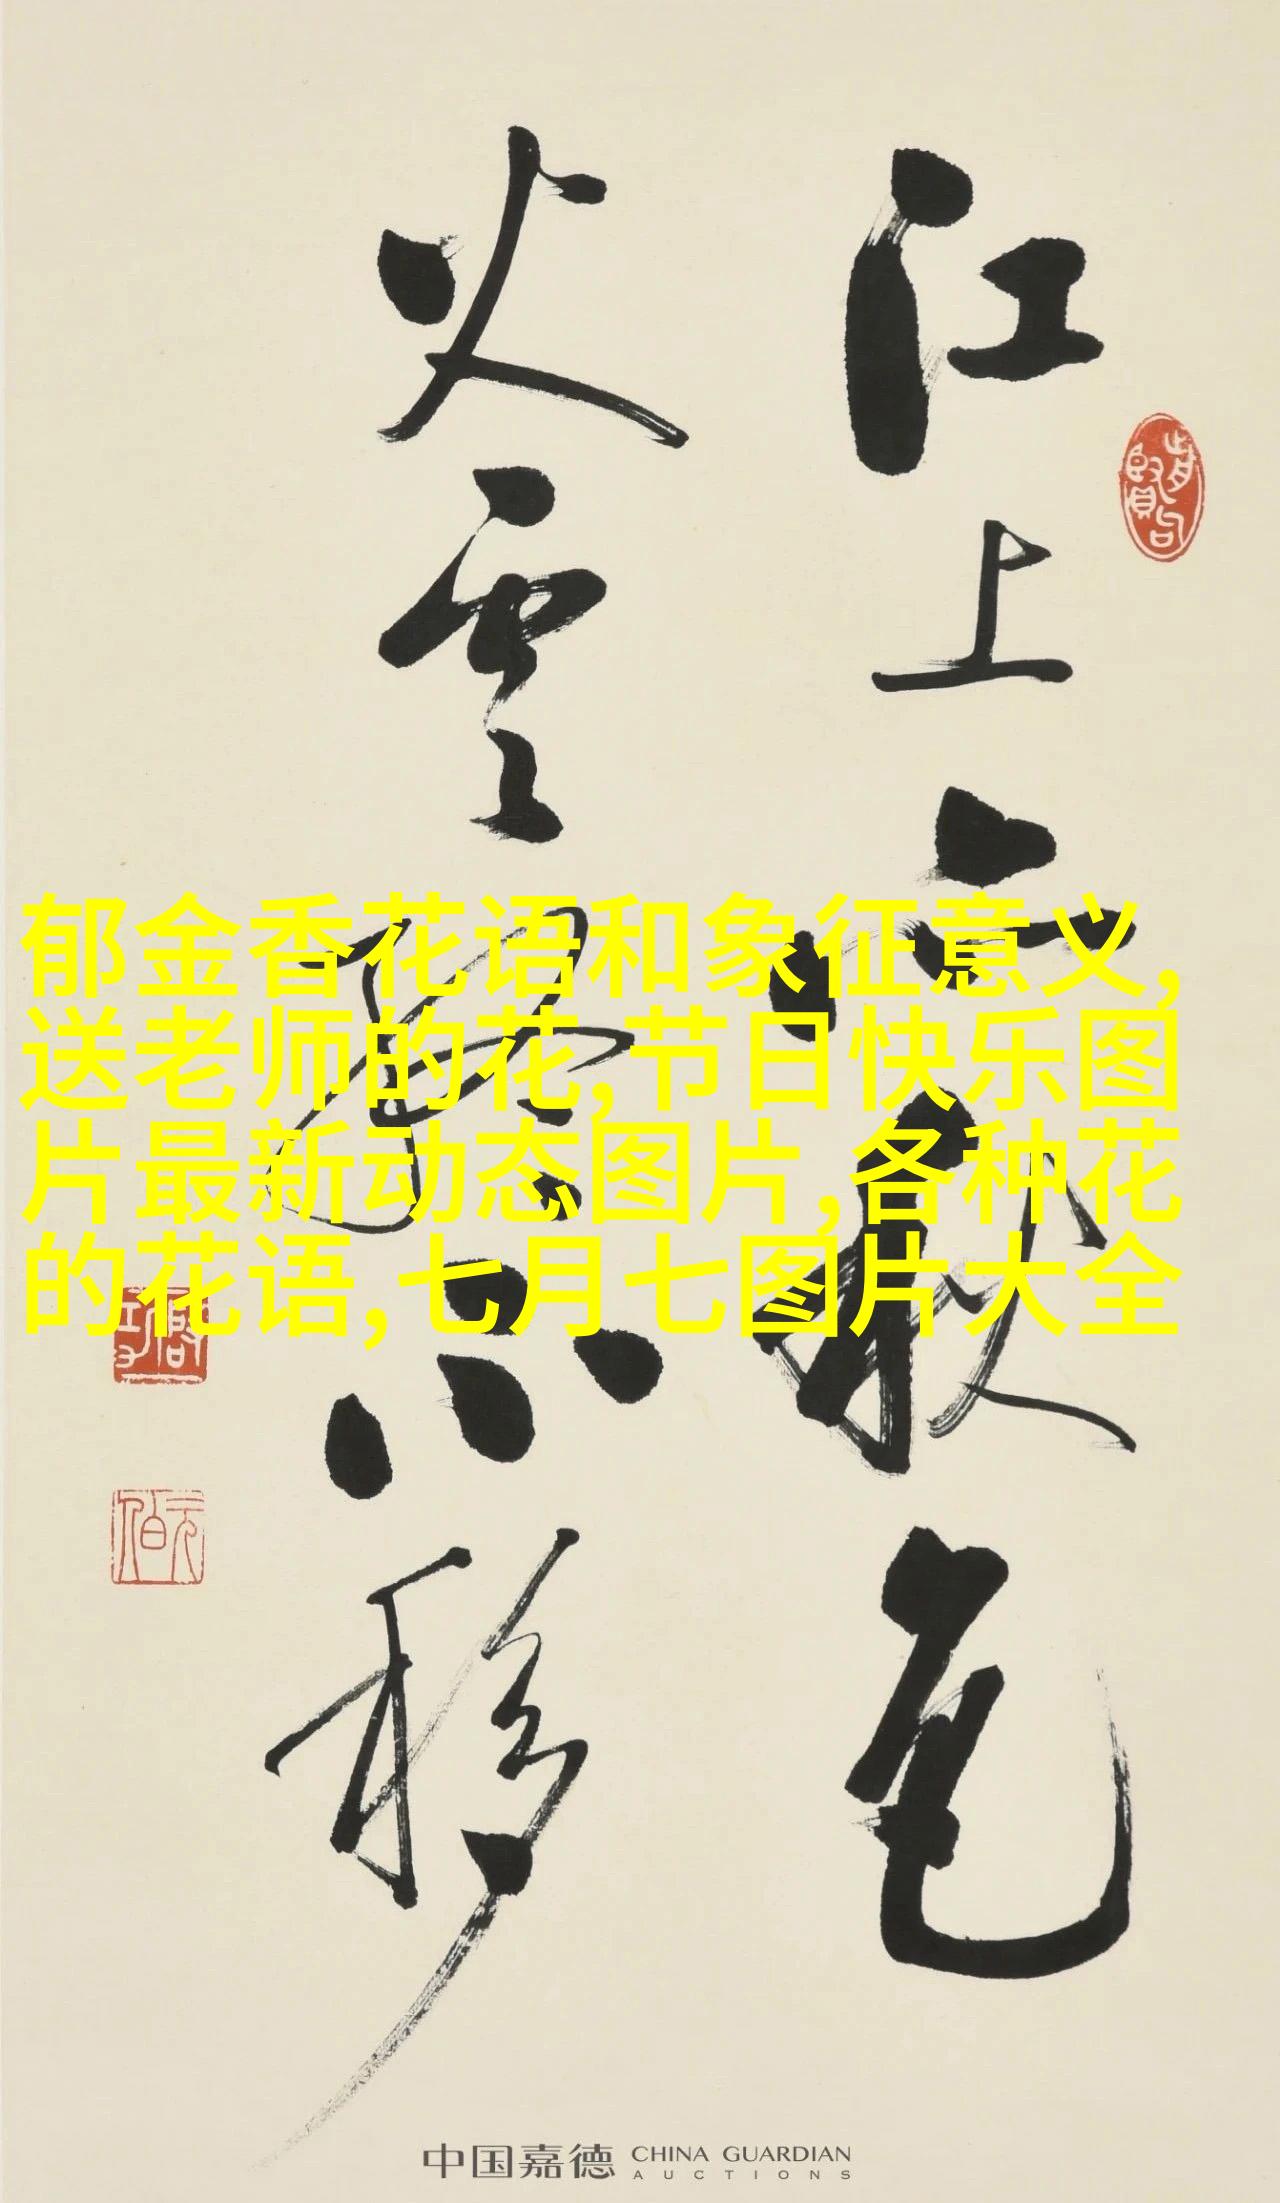 江上亦秋色
火雲終不移
郁金香花语和象征意义,
送老师的花,节日快乐图
片最新动态图片,各种花
的花语,七月七图片大全
啟功
元伯
中国嘉德 CHINA GUARDIAN
AUCTIONS